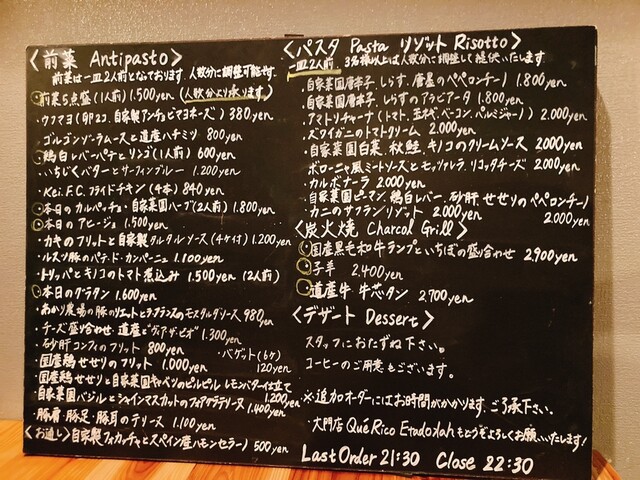 〈前菜 Antipasto〉
前菜は一皿2人前となっております。人数分に調整可能です。
前菜5点盛(1人前) 1.500yen (人数分より承ります)
・ウフマヨ(卵2コ、自家製アンチョビマヨネーズ) 380yen
・ゴルゴンゾーラムースと道産ハチミツ 800yen
鶏白レバーパテとリンゴ(1人前) 600yen
・いちじくバターとサーフィンブルー 1.200yen
・Kei.F.C. フライドチキン(4本) 840yen
本日のカルパッチョ・自家菜園ハーブ(2人前) 1.800yen
本日のアヒージョ 1.500yen
・カキのフリットと自家製タルタルソース(4ケ付) 1.200yen
・ルスツ豚のパテ・ド・カンパーニュ 1.100yen
・トリッパとキノコのトマト煮込み 1.500yen (2人前)
本日のグラタン 1.600yen
・あかり農場の豚のリエットとラ・フランスのモスタルダソース 980yen
・チーズ盛り合わせ 道産 1.300yen
・砂肝コンフィのフリット 800yen
・バゲット(6ケ) 120yen
・国産鶏せせりのフリット 1.000yen
・国産鶏せせりと自家菜園キャベツのピルピル レモンバター仕立て 1.200yen
・自家菜園バジルとシャインマスカットのフォアグラテリーヌ 1.400yen
・豚肩・豚足・豚耳のテリーヌ 1.100yen
〈お通し〉自家製フォカッチャとスペイン産ハモンセラーノ 500yen
〈パスタ Pasta リゾット Risotto〉
一皿2人前。3名様以上は人数分に調整して提供いたします
・自家菜園唐辛子、しらす、唐墨のペペロンチーノ 1.800yen
・自家菜園唐辛子、しらすのアラビアータ 1.800yen
・アマトリチャーナ(トマト、玉ネギ、ベーコン、パルミジャーノ) 2.000yen
・ズワイガニのトマトクリーム 2.000yen
・自家菜園白菜、秋鮭、キノコのクリームソース 2.000yen
・ボローニャ風ミートソースとモッツァレラ、リコッタチーズ 2.000yen
・カルボナーラ 2.000yen
・自家菜園ピーマン、鶏白レバー、砂肝、せせりのペペロンチーノ 2.000yen
・カニのサフランリゾット 2.000yen
〈炭火焼 Charcoal Grill〉
国産黒毛和牛ランプといちぼの盛り合わせ 2,900yen
子羊 2.400yen
道産牛 牛芯タン 2,700yen
〈デザート Dessert〉
スタッフにおたずね下さい。
コーヒーのご用意もございます。
※追加オーダーにはお時間がかかります。ご了承下さい。
・大門店 Qué Rico Etadokah もどうぞよろしくお願いいたします!
Last Order 21:30 Close 22:30